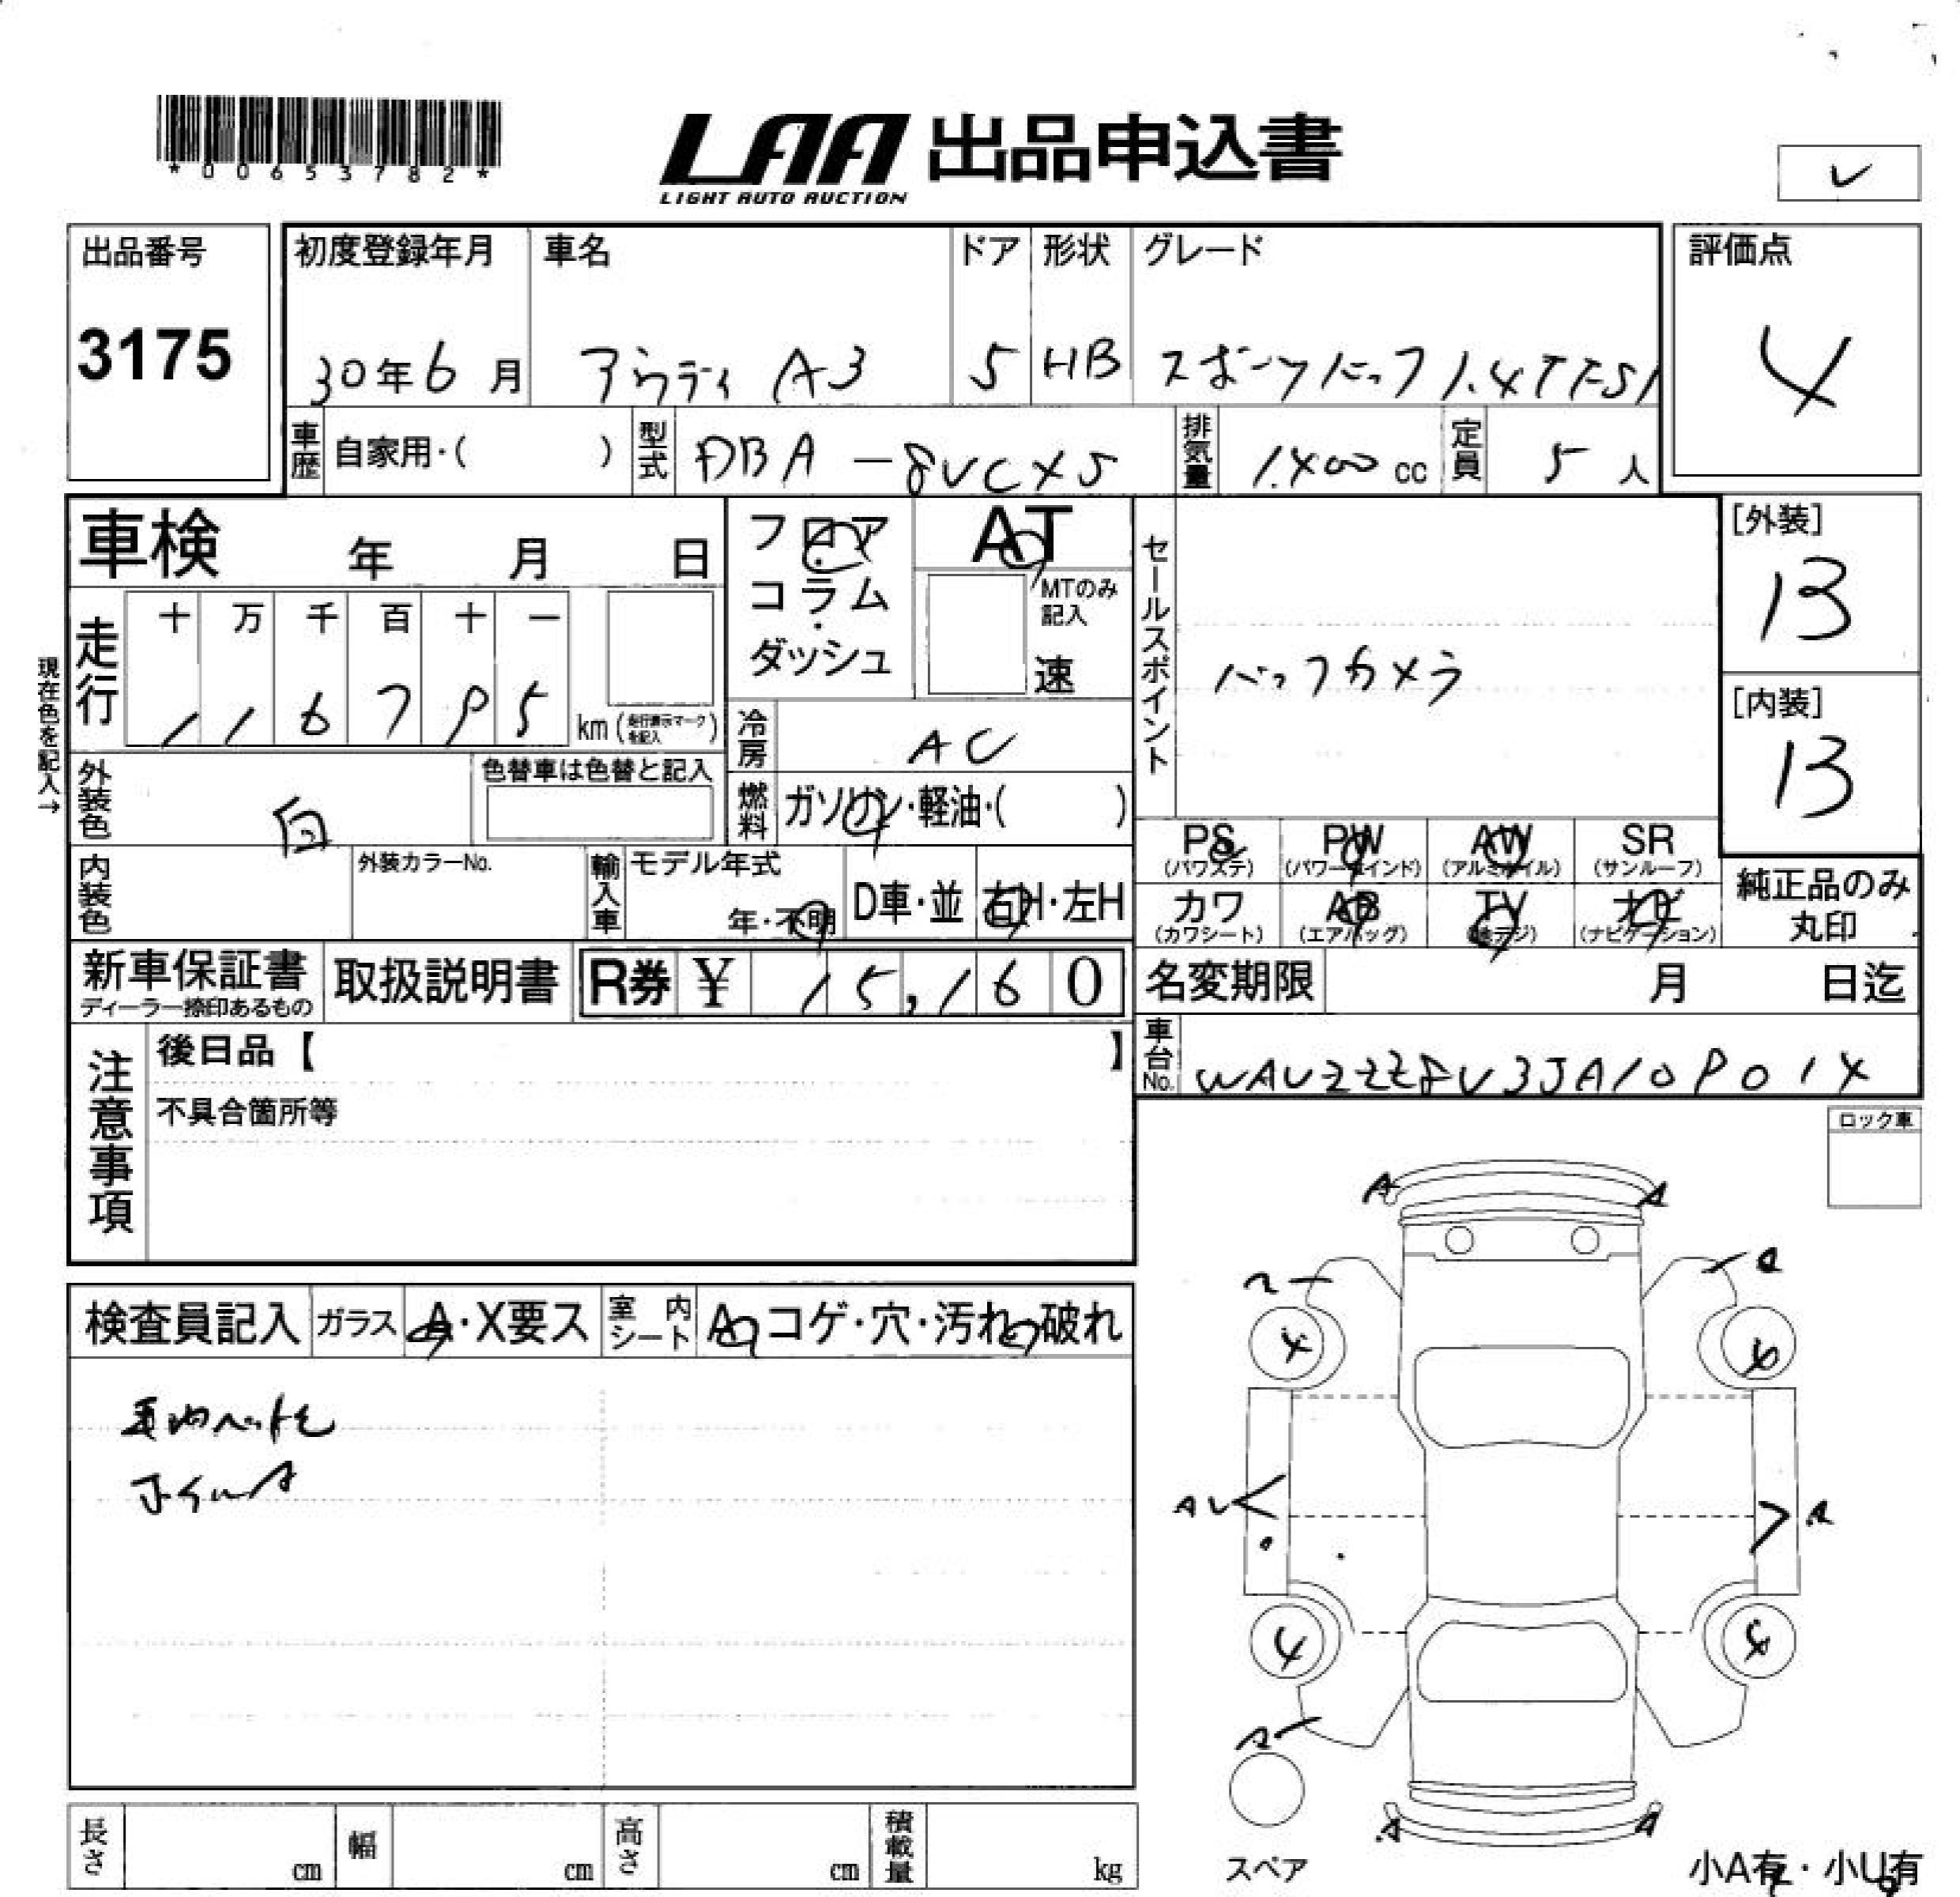 *00653782*
LAA 出品申込書
LIGHT AUTO AUCTION
レ
出品番号 初度登録年月 車名 ドア 形状 グレード 評価点
3175 30年6月 アウディ A3 5 HB スポーツバック 1.4TFSI 4
車歴 自家用・( ) 型式 DBA-8VCXS 排気量 1400cc 定員 5人
車検 年 月 日
フロア・コラム・ダッシュ
AT
MTのみ記入
速
セールスポイント
バックカメラ
[外装]
B
[内装]
B
現在色を記入→
走行 十 万 千 百 十 一
km (走行表示マークを記入)
冷房 AC
外装色 白 色替車は色替と記入
燃料 ガソリン・軽油・( )
PS (パワステ) PW (パワーウインド) AW (アルミホイル) SR (サンルーフ)
カワ (カワシート) AB (エアバッグ) TV (地デジ) ナビ (ナビゲーション)
純正品のみ丸印
内装色 外装カラーNo. 輸入車 モデル年式 年・不明 D車・並 右H・左H
新車保証書 取扱説明書 R券 ¥ 15,160
ディーラー捺印あるもの
名変期限 月 日迄
車台No.
注意事項
後日品【 】
不具合箇所等
ロック車
検査員記入 ガラス A・X要ス 室内シート A・コゲ・穴・汚れ・破れ
ホイールA
A A
A
A
スペア
小A有・小U有
長さ cm 幅 cm 高さ cm 積載量 kg